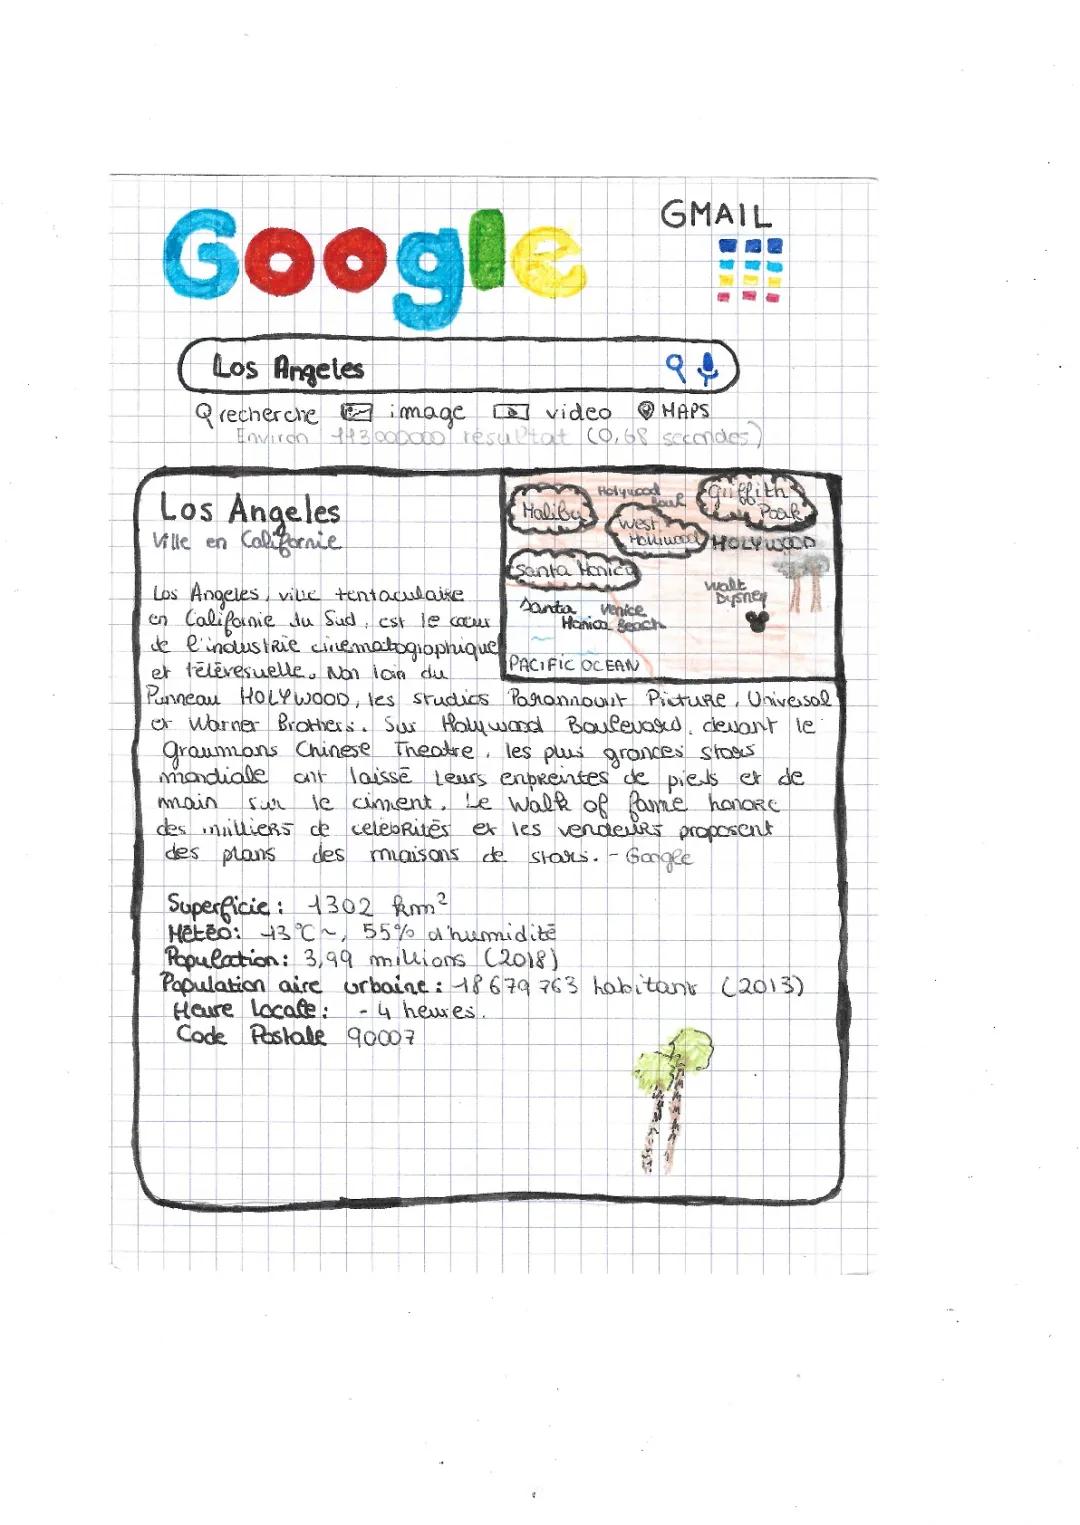 Google
GMAIL
Los Angeles
recherche image video MAPS
Environ 113000000 résultat (0,68 secondes)
Los Angeles
Ville en Californie
Malibu
Holywood Boul
Griffith Park
West Holywood
HOLYWOOD
Santa Monica
Walt Dysney
Santa Monica
Venice Beach
PACIFIC OCEAN
Los Angeles, ville tentaculaire
en Califonie du Sud, est le cœur
de l'industrie cinematographique
et télévesuelle. Non loin du
Panneau HOLYWOOD, les studios Paramnount Picture, Universal
et Warner Brothers. Sur Holywood Boulevard, devant le
Graumans Chinese Theatre, les plus grandes stars
mondiale ont laissé leurs enpreintes de pieds et de
main sur le ciment. Le Walk of fame honore
des milliers de celebrités et les vendeurs proposent
des plans des maisons de stars. - Google
Superficie : 1302 km²
Météo : 13°C ~, 55% d'humidité
Population : 3,99 millions (2018)
Population aire urbaine : 18 679 763 habitant (2013)
Heure locale : - 4 heures.
Code Postale 90007